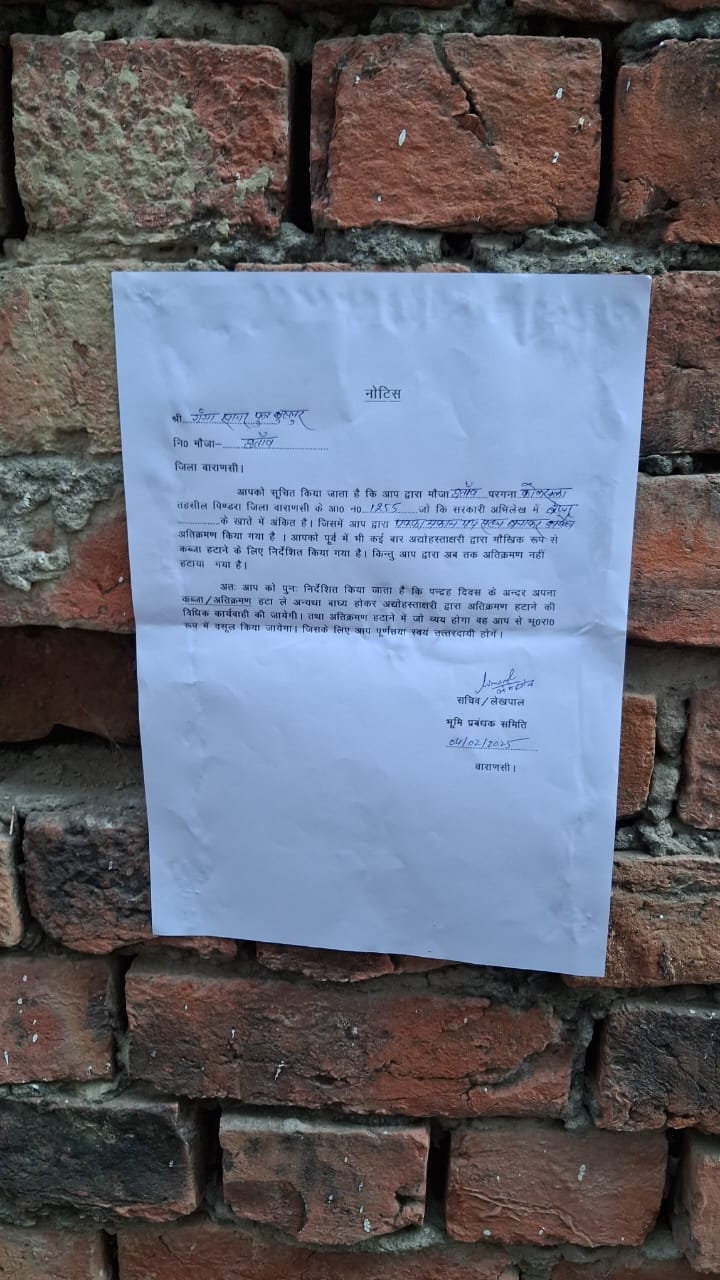 नोटिस
श्री गंगा सागर पुत्र
नि० मौजा-
जिला वाराणसी।
आपको सूचित किया जाता है कि आप द्वारा मौजा परगना कोलअसला
तहसील पिण्डरा जिला वाराणसी के आ० न० 1255 जो कि सरकारी अभिलेख में
के खाते में अंकित है। जिसमें आप द्वारा पक्का मकान एवं सहन बनाकर
अतिक्रमण किया गया है । आपको पूर्व में भी कई बार अद्योहस्ताक्षरी द्वारा मौखिक रूप से
कब्जा हटाने के लिए निर्देशित किया गया है। किन्तु आप द्वारा अब तक अतिक्रमण नहीं
हटाया गया है।
अतः आप को पुनः निर्देशित किया जाता है कि पन्द्रह दिवस के अन्दर अपना
कब्जा/अतिक्रमण हटा ले अन्यथा बाध्य होकर अद्योहस्ताक्षरी द्वारा अतिक्रमण हटाने की
विधिक कार्यवाही की जायेगी। तथा अतिक्रमण हटाने में जो व्यय होगा वह आप से भू०रा०
रूप में वसूल किया जायेगा। जिसके लिए आप पूर्णतया स्वयं उत्तरदायी होगें।
सचिव/लेखपाल
भूमि प्रबंधक समिति
04/02/2025
वाराणसी।